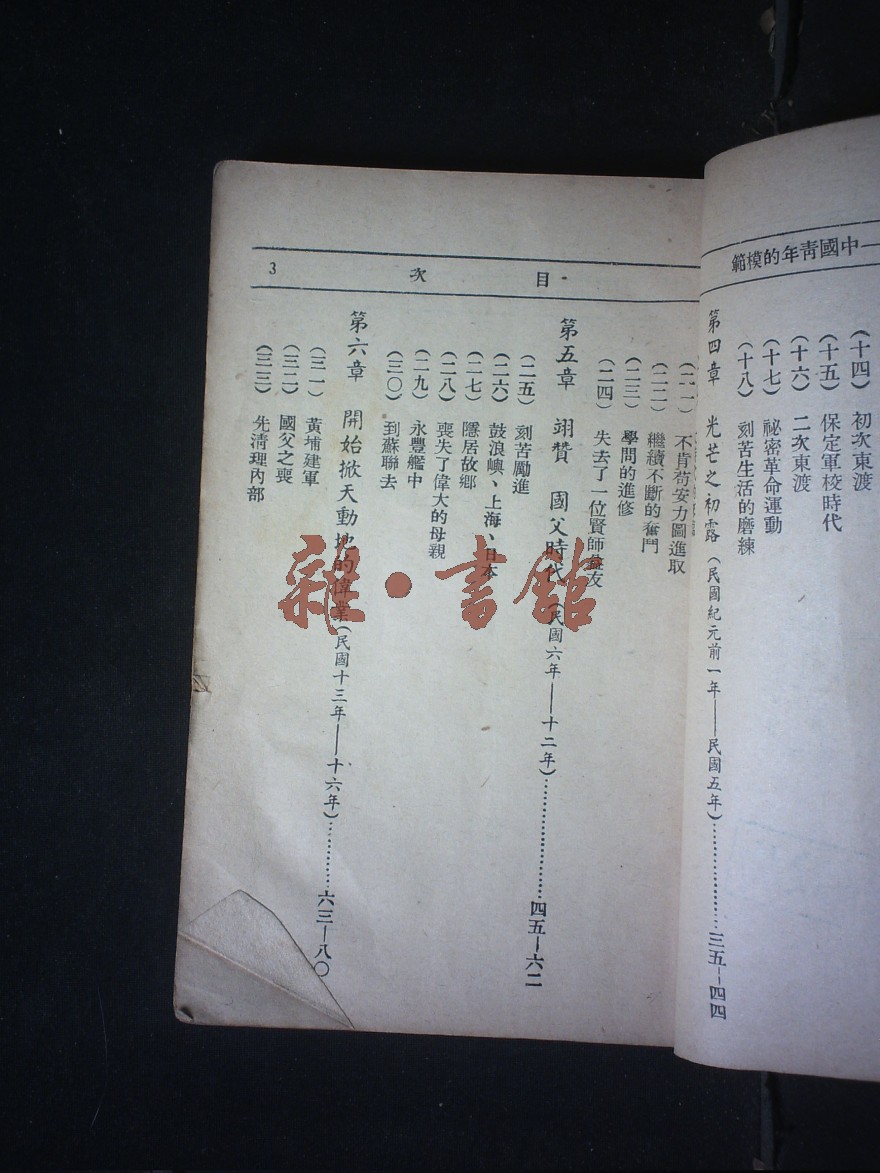 —中國青年的模範
(十四) 初次東渡
(十五) 保定軍校時代
(十六) 二次東渡
(十七) 祕密革命運動
(十八) 刻苦生活的磨練
第四章 光芒之初露(民國紀元前一年——民國五年)……………三五—四四
目 次 3
(二一) 不肯苟安力圖進取
(二二) 繼續不斷的奮鬥
(二三) 學問的進修
(二四) 失去了一位賢師益友
第五章 翊贊 國父時代 (民國六年——十二年)……………四五—六二
(二五) 刻苦勵進
(二六) 鼓浪嶼、上海、日本
(二七) 隱居故鄉
(二八) 喪失了偉大的母親
(二九) 永豐艦中
(三〇) 到蘇聯去
第六章 開始掀天動地的偉業(民國十三年——十六年)………六三—八〇
(三一) 黃埔建軍
(三二) 國父之喪
(三三) 先清理內部
雜·書館